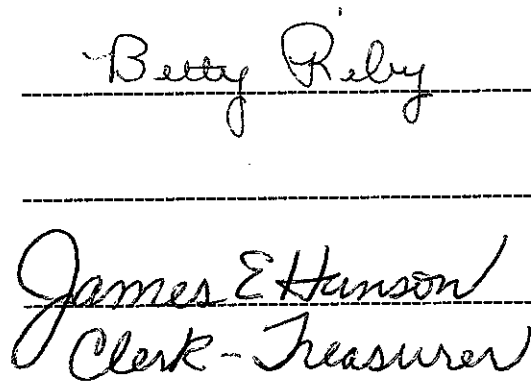 Betty Riby
James E Hanson
Clerk-Treasurer